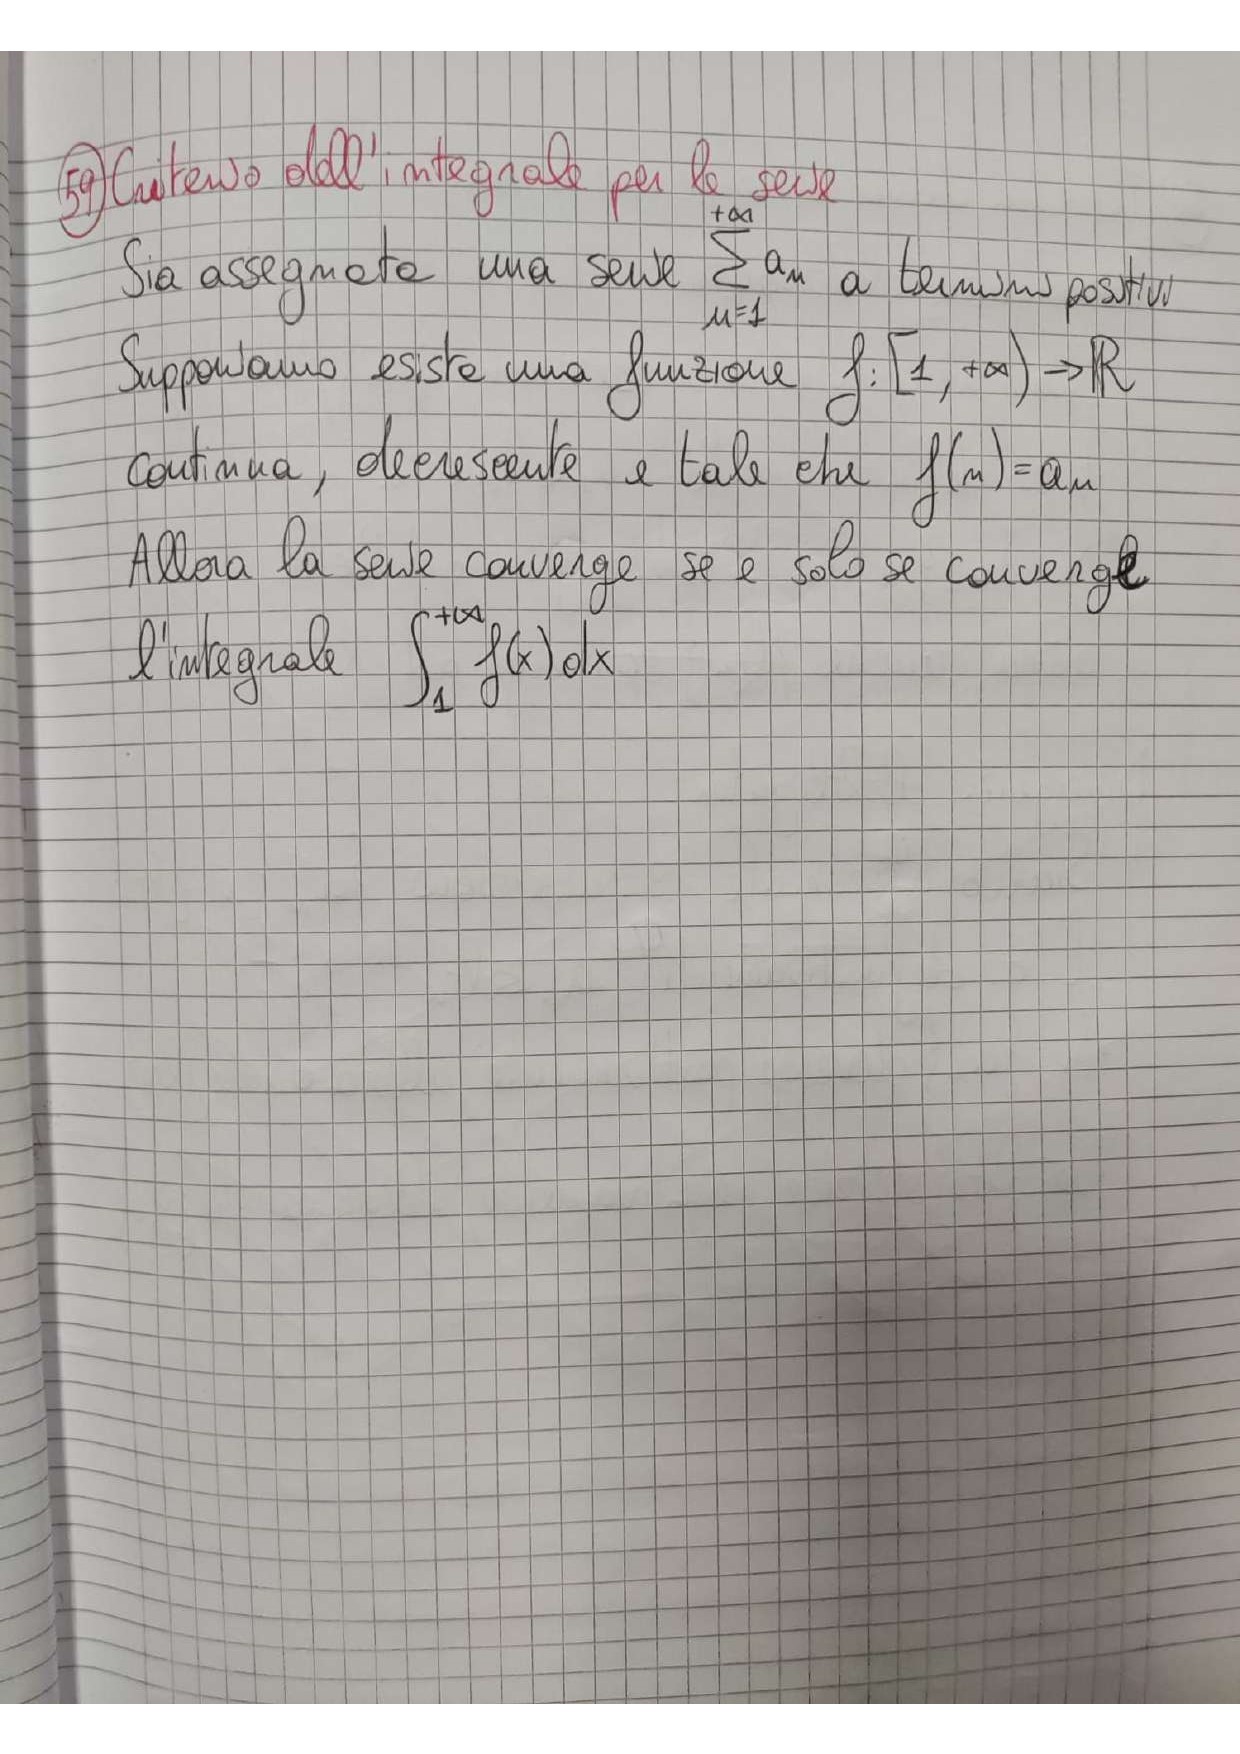 59) Criterio dell'integrale per le serie
Sia assegnata una serie \sum_{n=1}^{+∞} a_n a termini positivi
Supponiamo esista una funzione f: [1, +∞) → ℝ
continua, decrescente e tale che f(n) = a_n
Allora la serie converge se e solo se converge
l'integrale \int_1^{+∞} f(x) dx